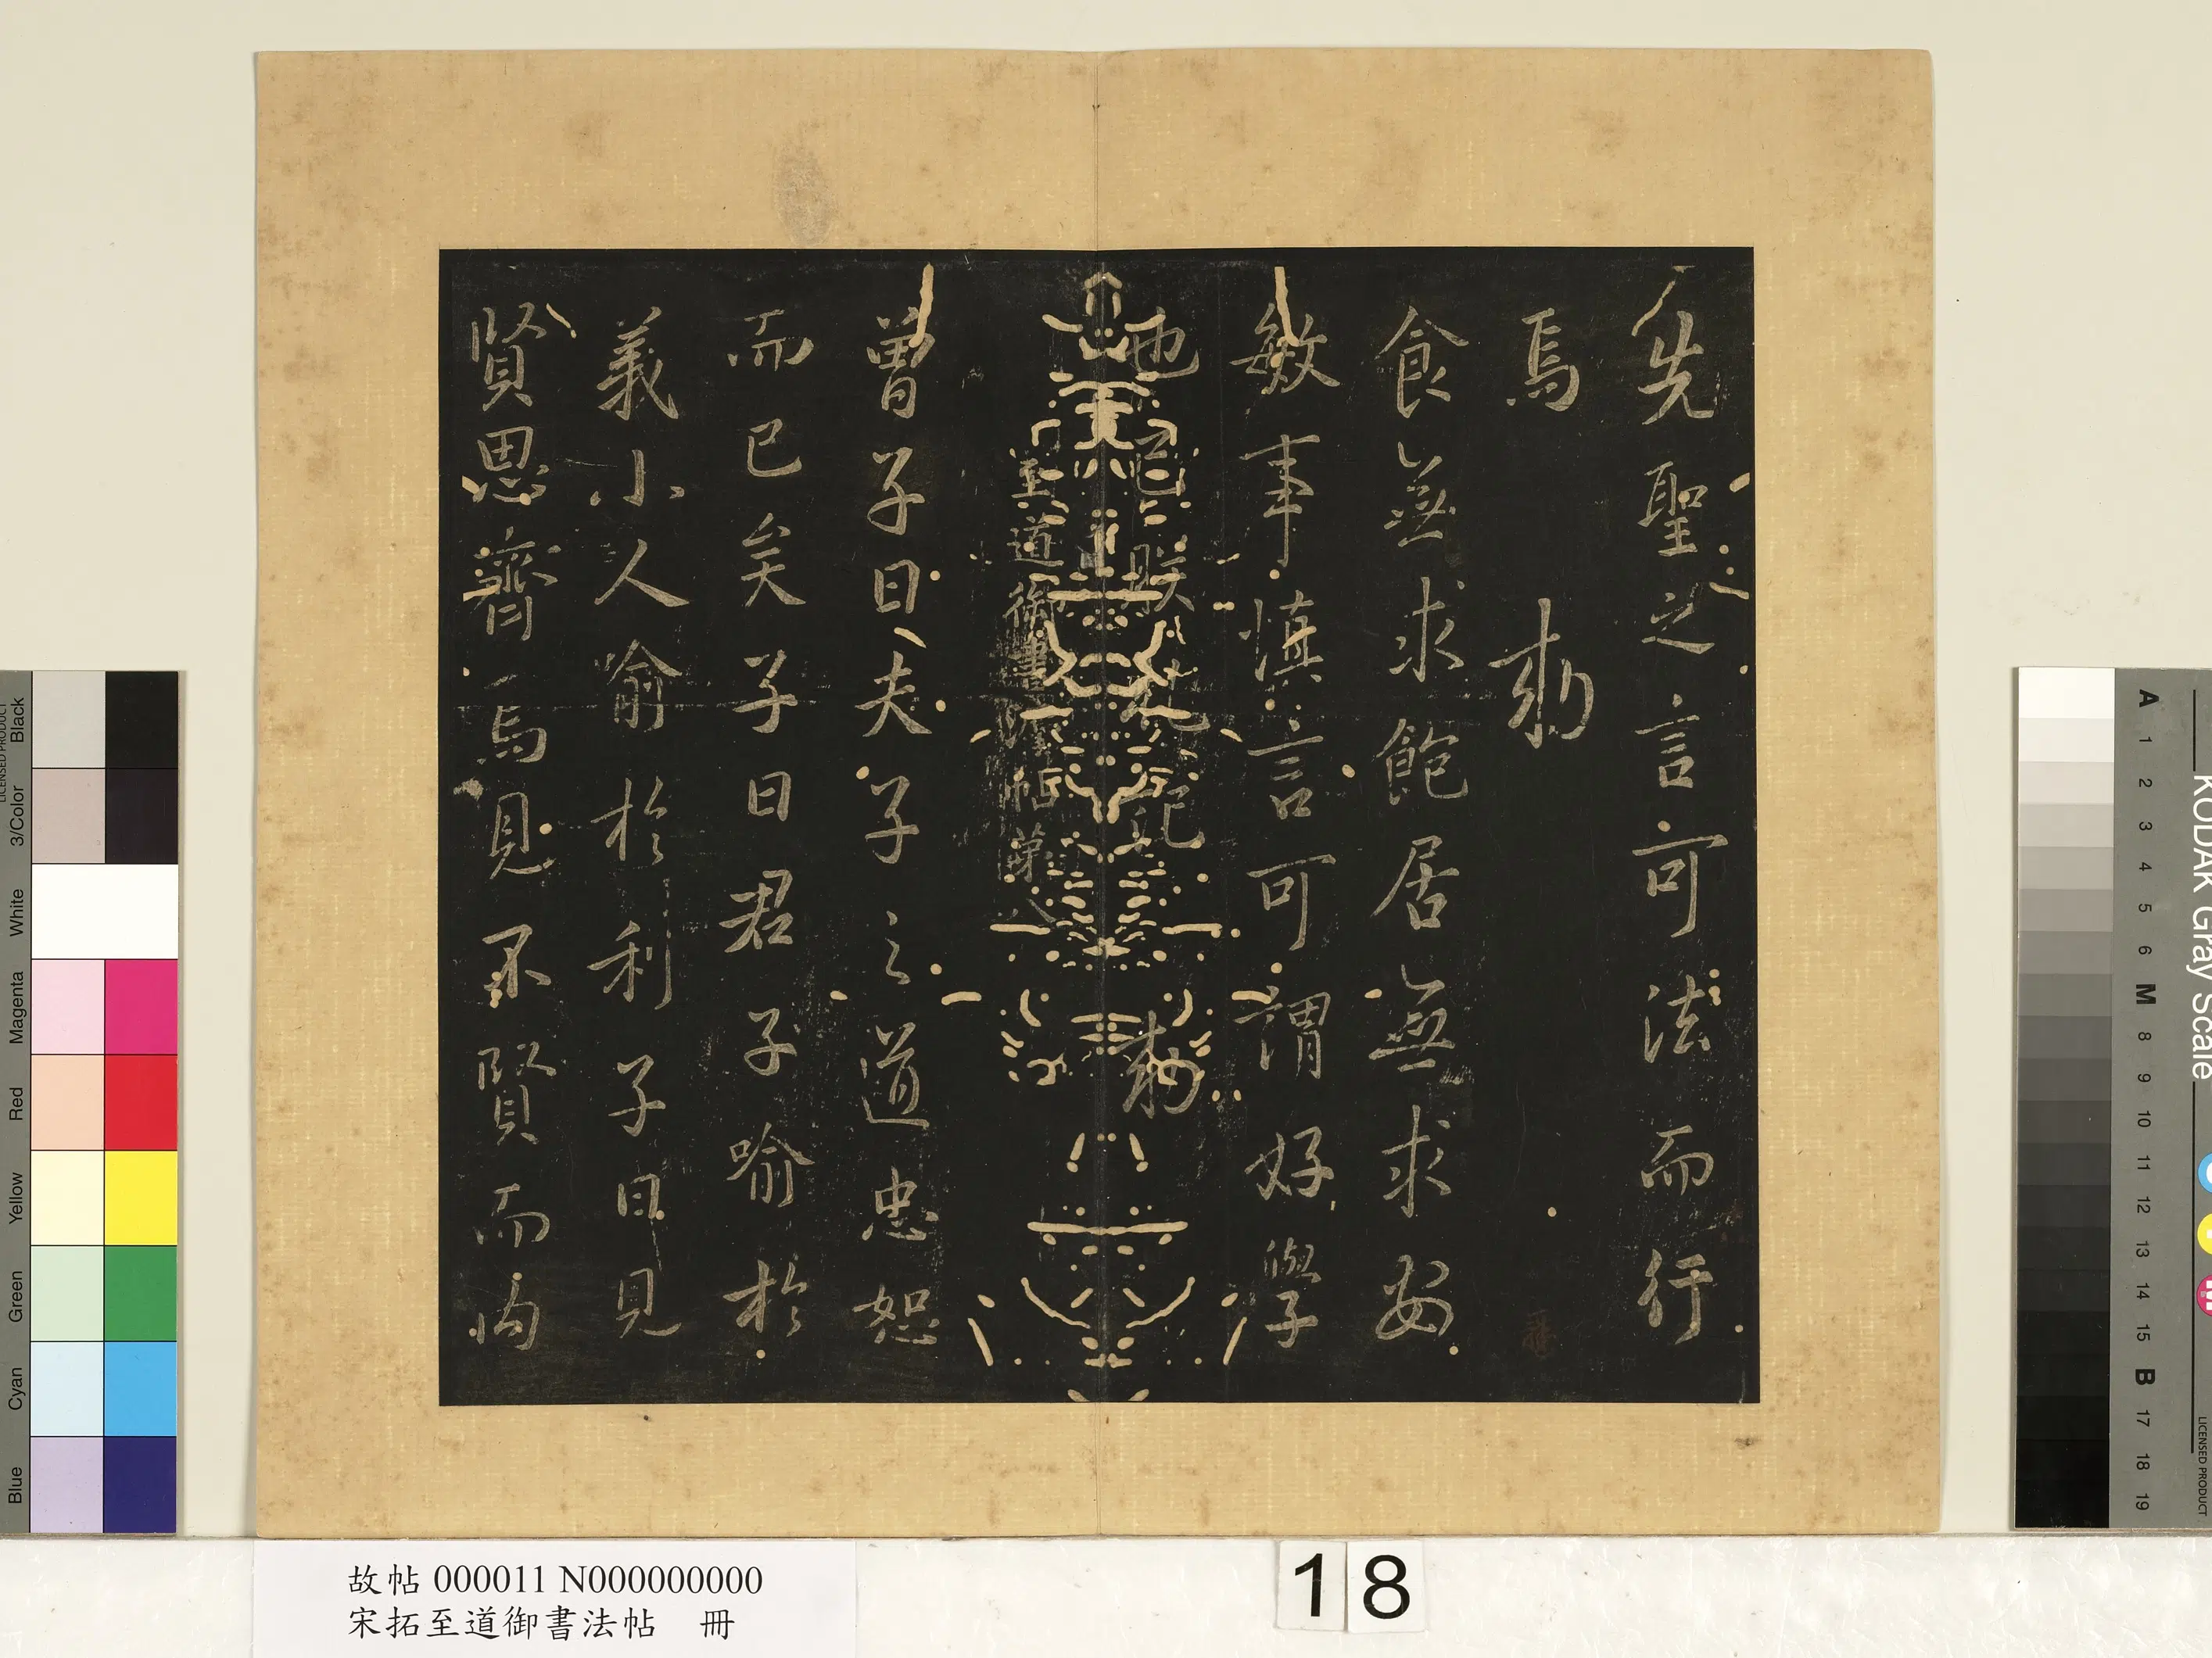 先聖之言可法而行
焉 勅
食無求飽居無求安
敏事慎言可謂好學
也已朕記 勅
至道御書法帖第八
曾子曰夫子之道忠恕
而已矣子曰君子喻於
義小人喻於利子曰見
賢思齊焉見不賢而內
故帖 000011 N000000000
宋拓至道御書法帖 冊
18
Black
3/Color
White
Magenta
Red
Yellow
Green
Cyan
Blue
LICENSED PRODUCT
KODAK Gray Scale
A 1 2 3 4 5 6 M 8 9 10 11 12 13 14 15 B 17 18 19
LICENSED PRODUCT